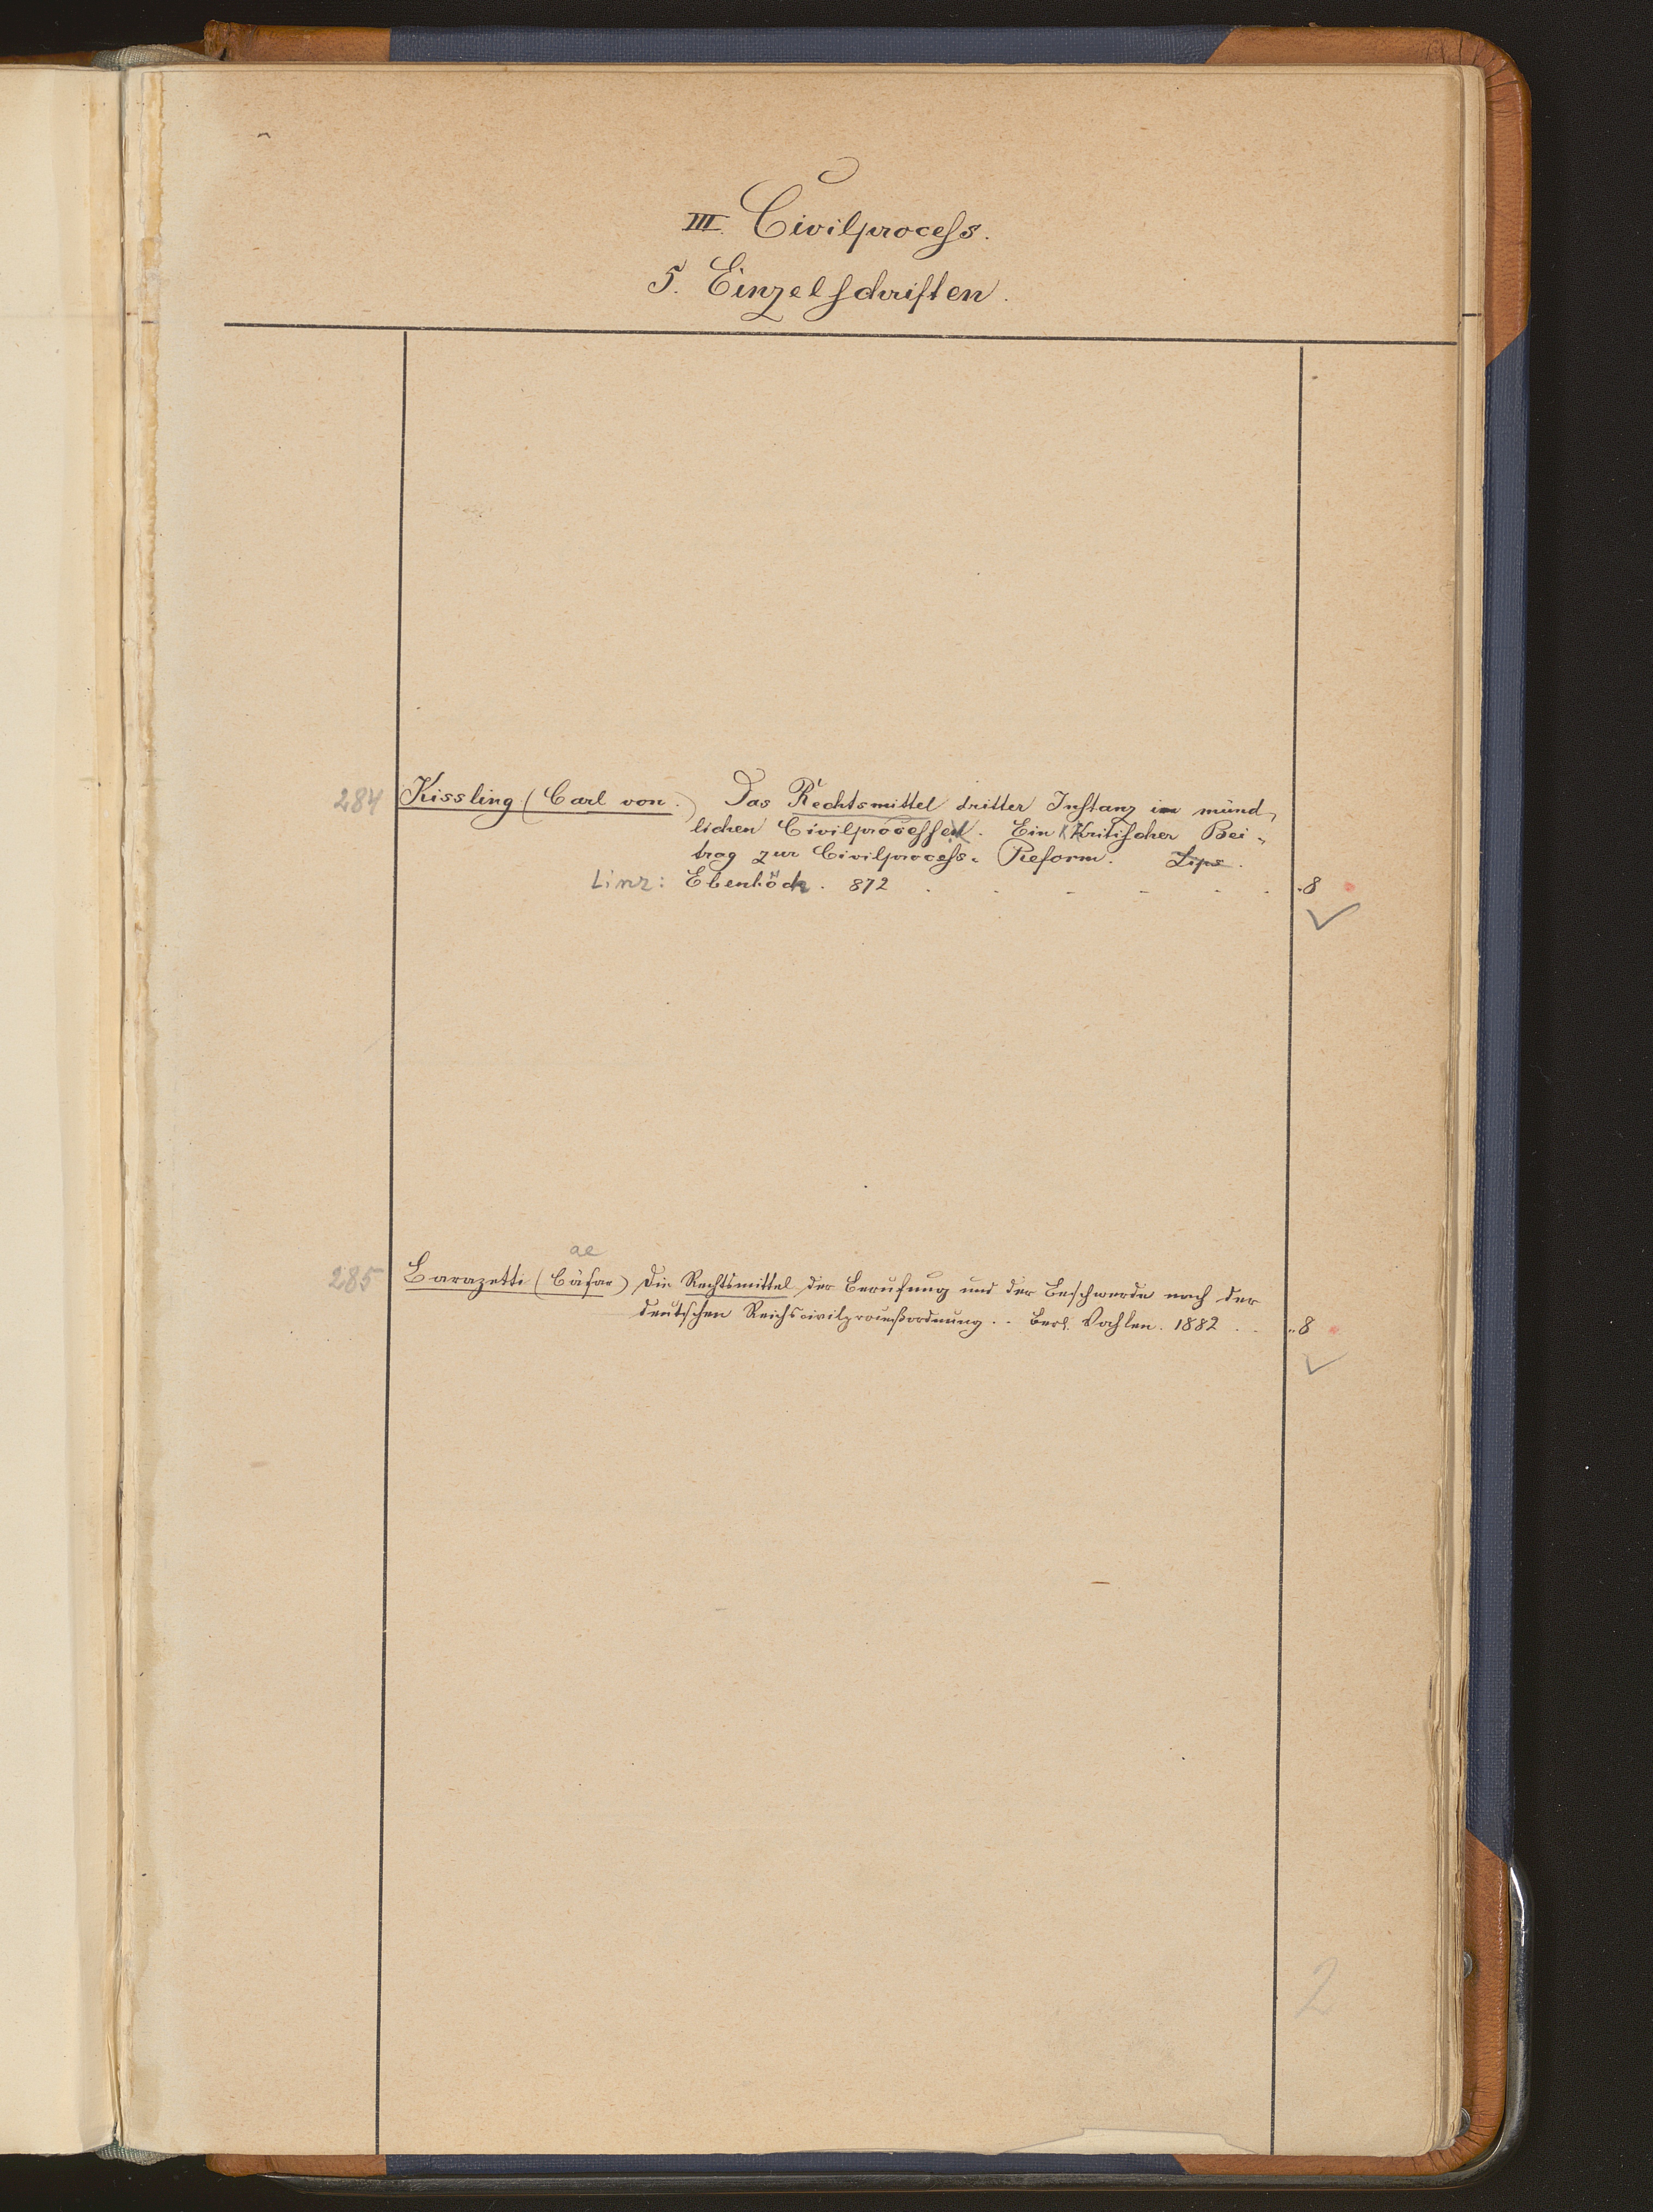 III. Civilprocess.
5. Einzelschriften.
284 Kissling (Carl von.) Das Rechtsmittel dritter Instanz im münd-
lichen Civilprocessen. Ein Kritischer Bei-
trag zur Civilprocess-Reform. Lips.
Linz: Ebenhöch. 872 . . . . . . 8
ae
285 Barazetti (Cäsar) Die Rechtsmittel der Berufung und der Beschwerde nach der
deutschen Reichscivilproceßordnung. . Berl. Vahlen. 1882 . . . 8
2